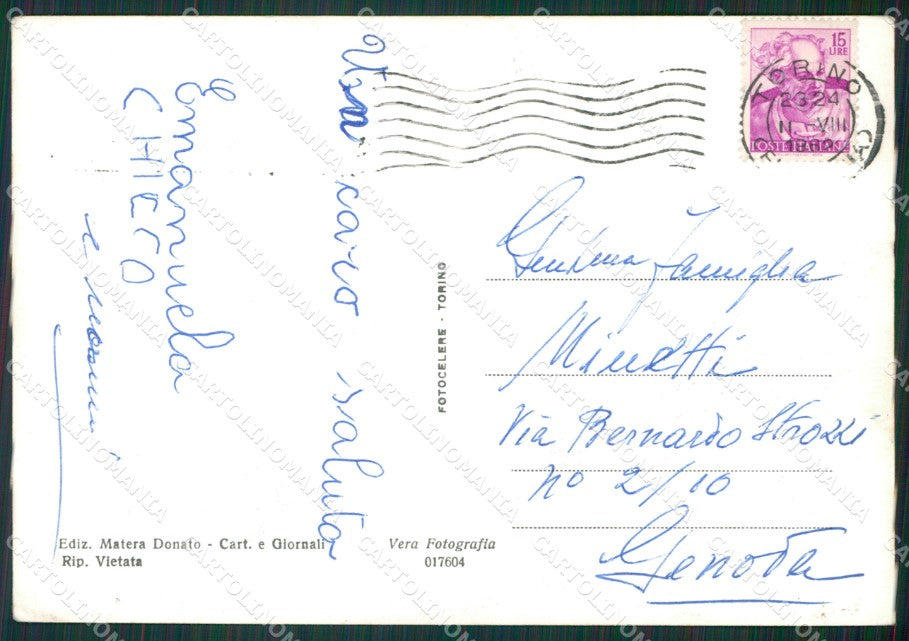 Un caro saluto
Emanuela
CHIEFO
e nonni
15
LIRE
TORINO
23-24
VIII
POSTE ITALIANE
Gent.ma Famiglia
Minetti
Via Bernardo Strozzi
no 2/10
Genova
FOTOCELERE - TORINO
Ediz. Matera Donato - Cart. e Giornali
Rip. Vietata
Vera Fotografia
017604
CARTOLINOMANIA